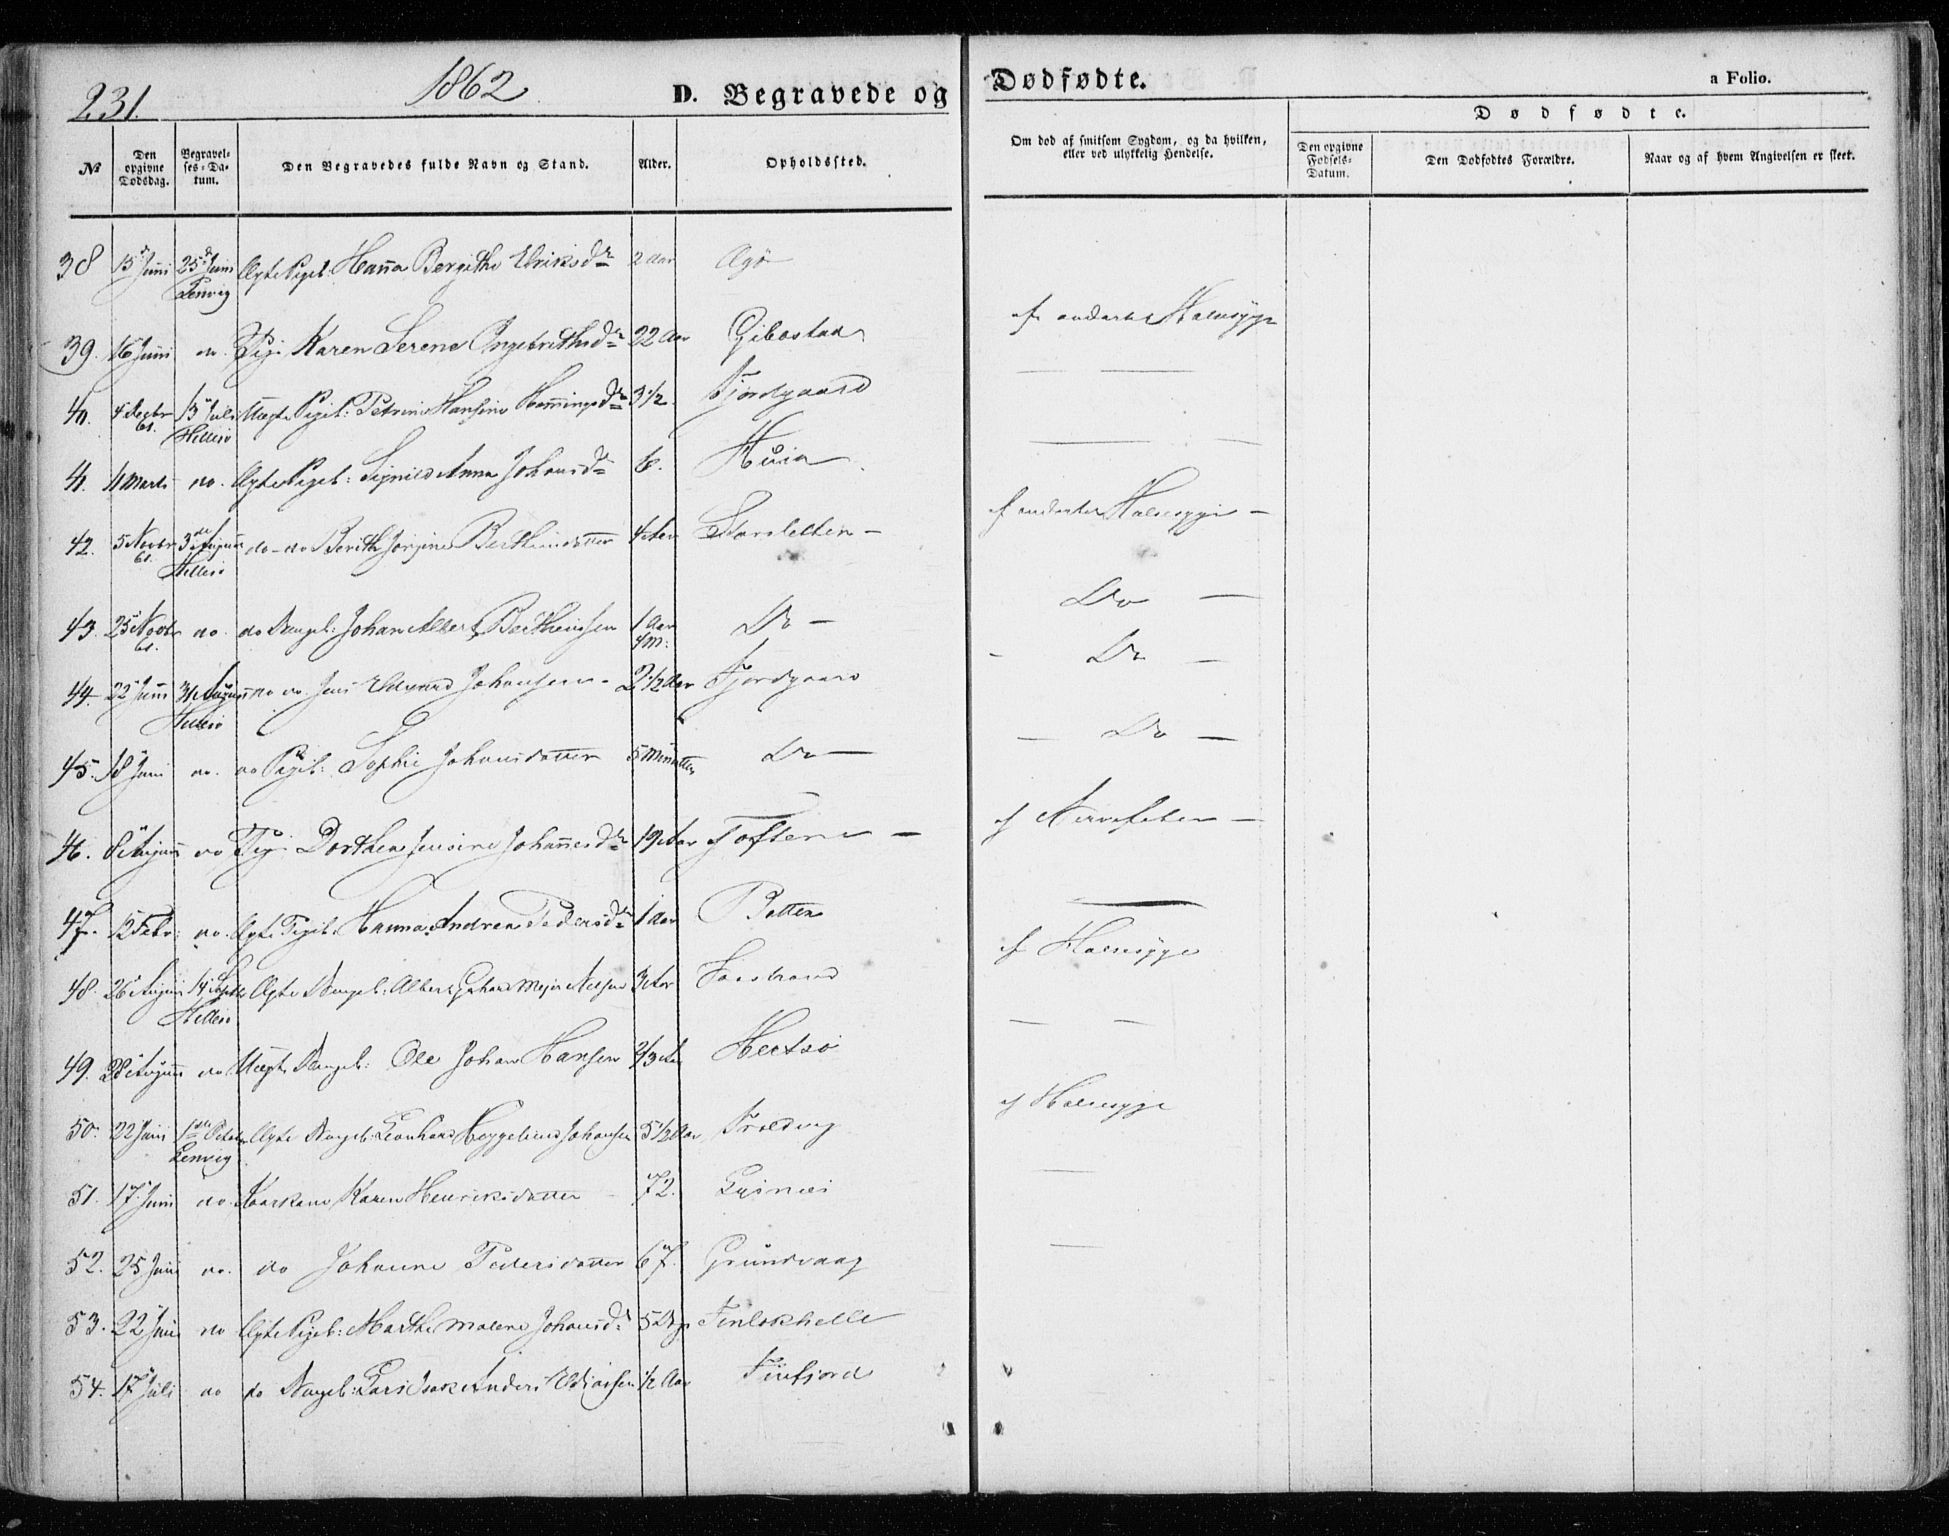 231.
1862
D. Begravede og Dødfødte.
a Folio.
№
Den opgivne Dødsdag.
Begravelses-Datum.
Den Begravedes fulde Navn og Stand.
Alder.
Opholdssted.
Om død af smitsom Sygdom, og da hvilken, eller ved ulykkelig Hendelse.
Dødfødte.
Den opgivne Fødsels-Datum.
Den Dødfødtes Forældre.
Naar og af hvem Angivelsen er skeet.
38 15 Juni 25 Juni Lenvig Ægte Pigeb: Hanna Bergithe Eriksdr 2 Aar
39. 16 Juni do. Pige Karen Serene Ingebrithsdr 22 Aar Gibostad
40. 4 Decbr 61. 13 Juli Hillesø Uægte Pigeb: Petrine Hansine Hemmingsdr 3 1/2 Fjordgaard
41. 11 Marts do. Ægte Pigeb: Signild Anna Johansdr 6. Husø
42. 5 Novbr 61. 3 August Hillesø do - do Berith Jørgine Berthinsdatter 4 Aar
43. 25 Novbr 61. do. do Drengeb: Johan Albert Berthinsen 1 Aar 4 M: Do - Do -
44. 22 Juni August Hillesø do do. Jens Edvard Johansen - 2 1/2 Aar Fjordgaard - Do -
45. 18 Juni do. do Pigeb: Sophie Johansdatter 5 Minutter Do - - Do -
46. 8 August do Pige Dorthea Jensine Johannesdr 19 Aar Toften - af Nervefeber -
47. 12 Febr: do. Ægte Pigeb. Hanna Andrea Pedersdr 1 Aar Botten
48. 26 August 14 Septbr Hillesø Ægte Drengeb: Albert Gerhard Mejer Nilsen 3 Aar af Halssyge
49. 28 August do Uægte Drengeb: Ole Johan Hansen 2/3 Aar
50. 22 Juni Lenvig Ægte Drengeb: Leonhard Heggelund Johansen 5 1/2 Aar Troldvig af Halssyge
51. 17 Juni do. Karen Henriksdatter 72.
52. 25 Juni do. do Johanne Pedersdatter 67. Grundvaag
53. 22 Juni do Ægte Pigeb: Marthe Malene Johansdr 5 Dage Finlokhelle
54. 17 Juli do do Drengeb: Lars Isak Anders 1/2 Aar Finfjord